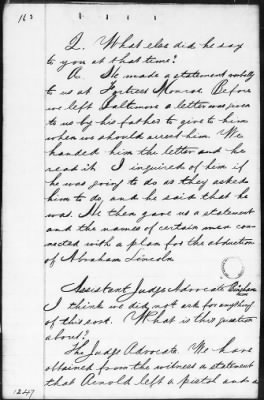 163
Q. What else did he say
to you at that time?
A. He made a statement verbally
to us at Fortress Monroe. Before
we left Baltimore a letter was given
to us by his father to give to him
when we should arrest him. We
handed him the letter and he
read it. I inquired of him if
he was going to do as they asked
him to do, and he said that he
was. He then gave us a statement
and the names of certain men con
nected with a plan for the abduction
of Abraham Lincoln
Assistant Judge Advocate Bingham
I think we did not ask for anything
of this sort. What is this question
about?
The Judge Advocate. We have
obtained from the witness a statement
that Arnold left a pistol and a
1247